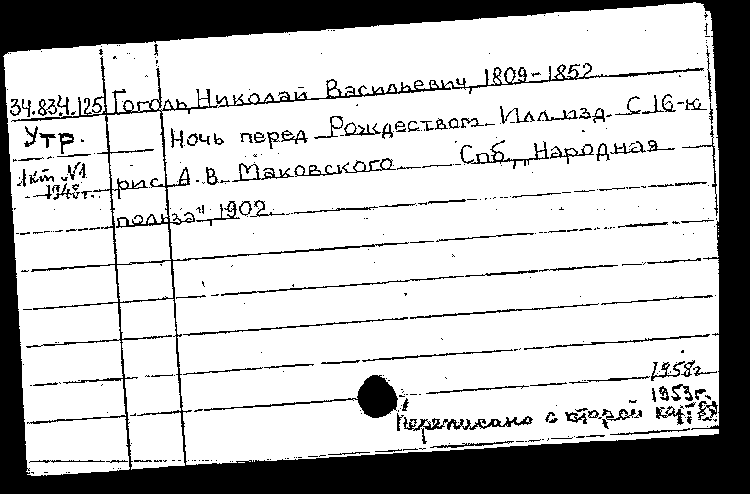 34.834.125 Гоголь, Николай Васильевич, 1809-1852
Утр. Ночь перед Рождеством Илл. изд. С 16-ю
1948г. рис А. В. Маковского Спб, „Народная
польза", 1902.
1958г
1953г.
Переписано с второй